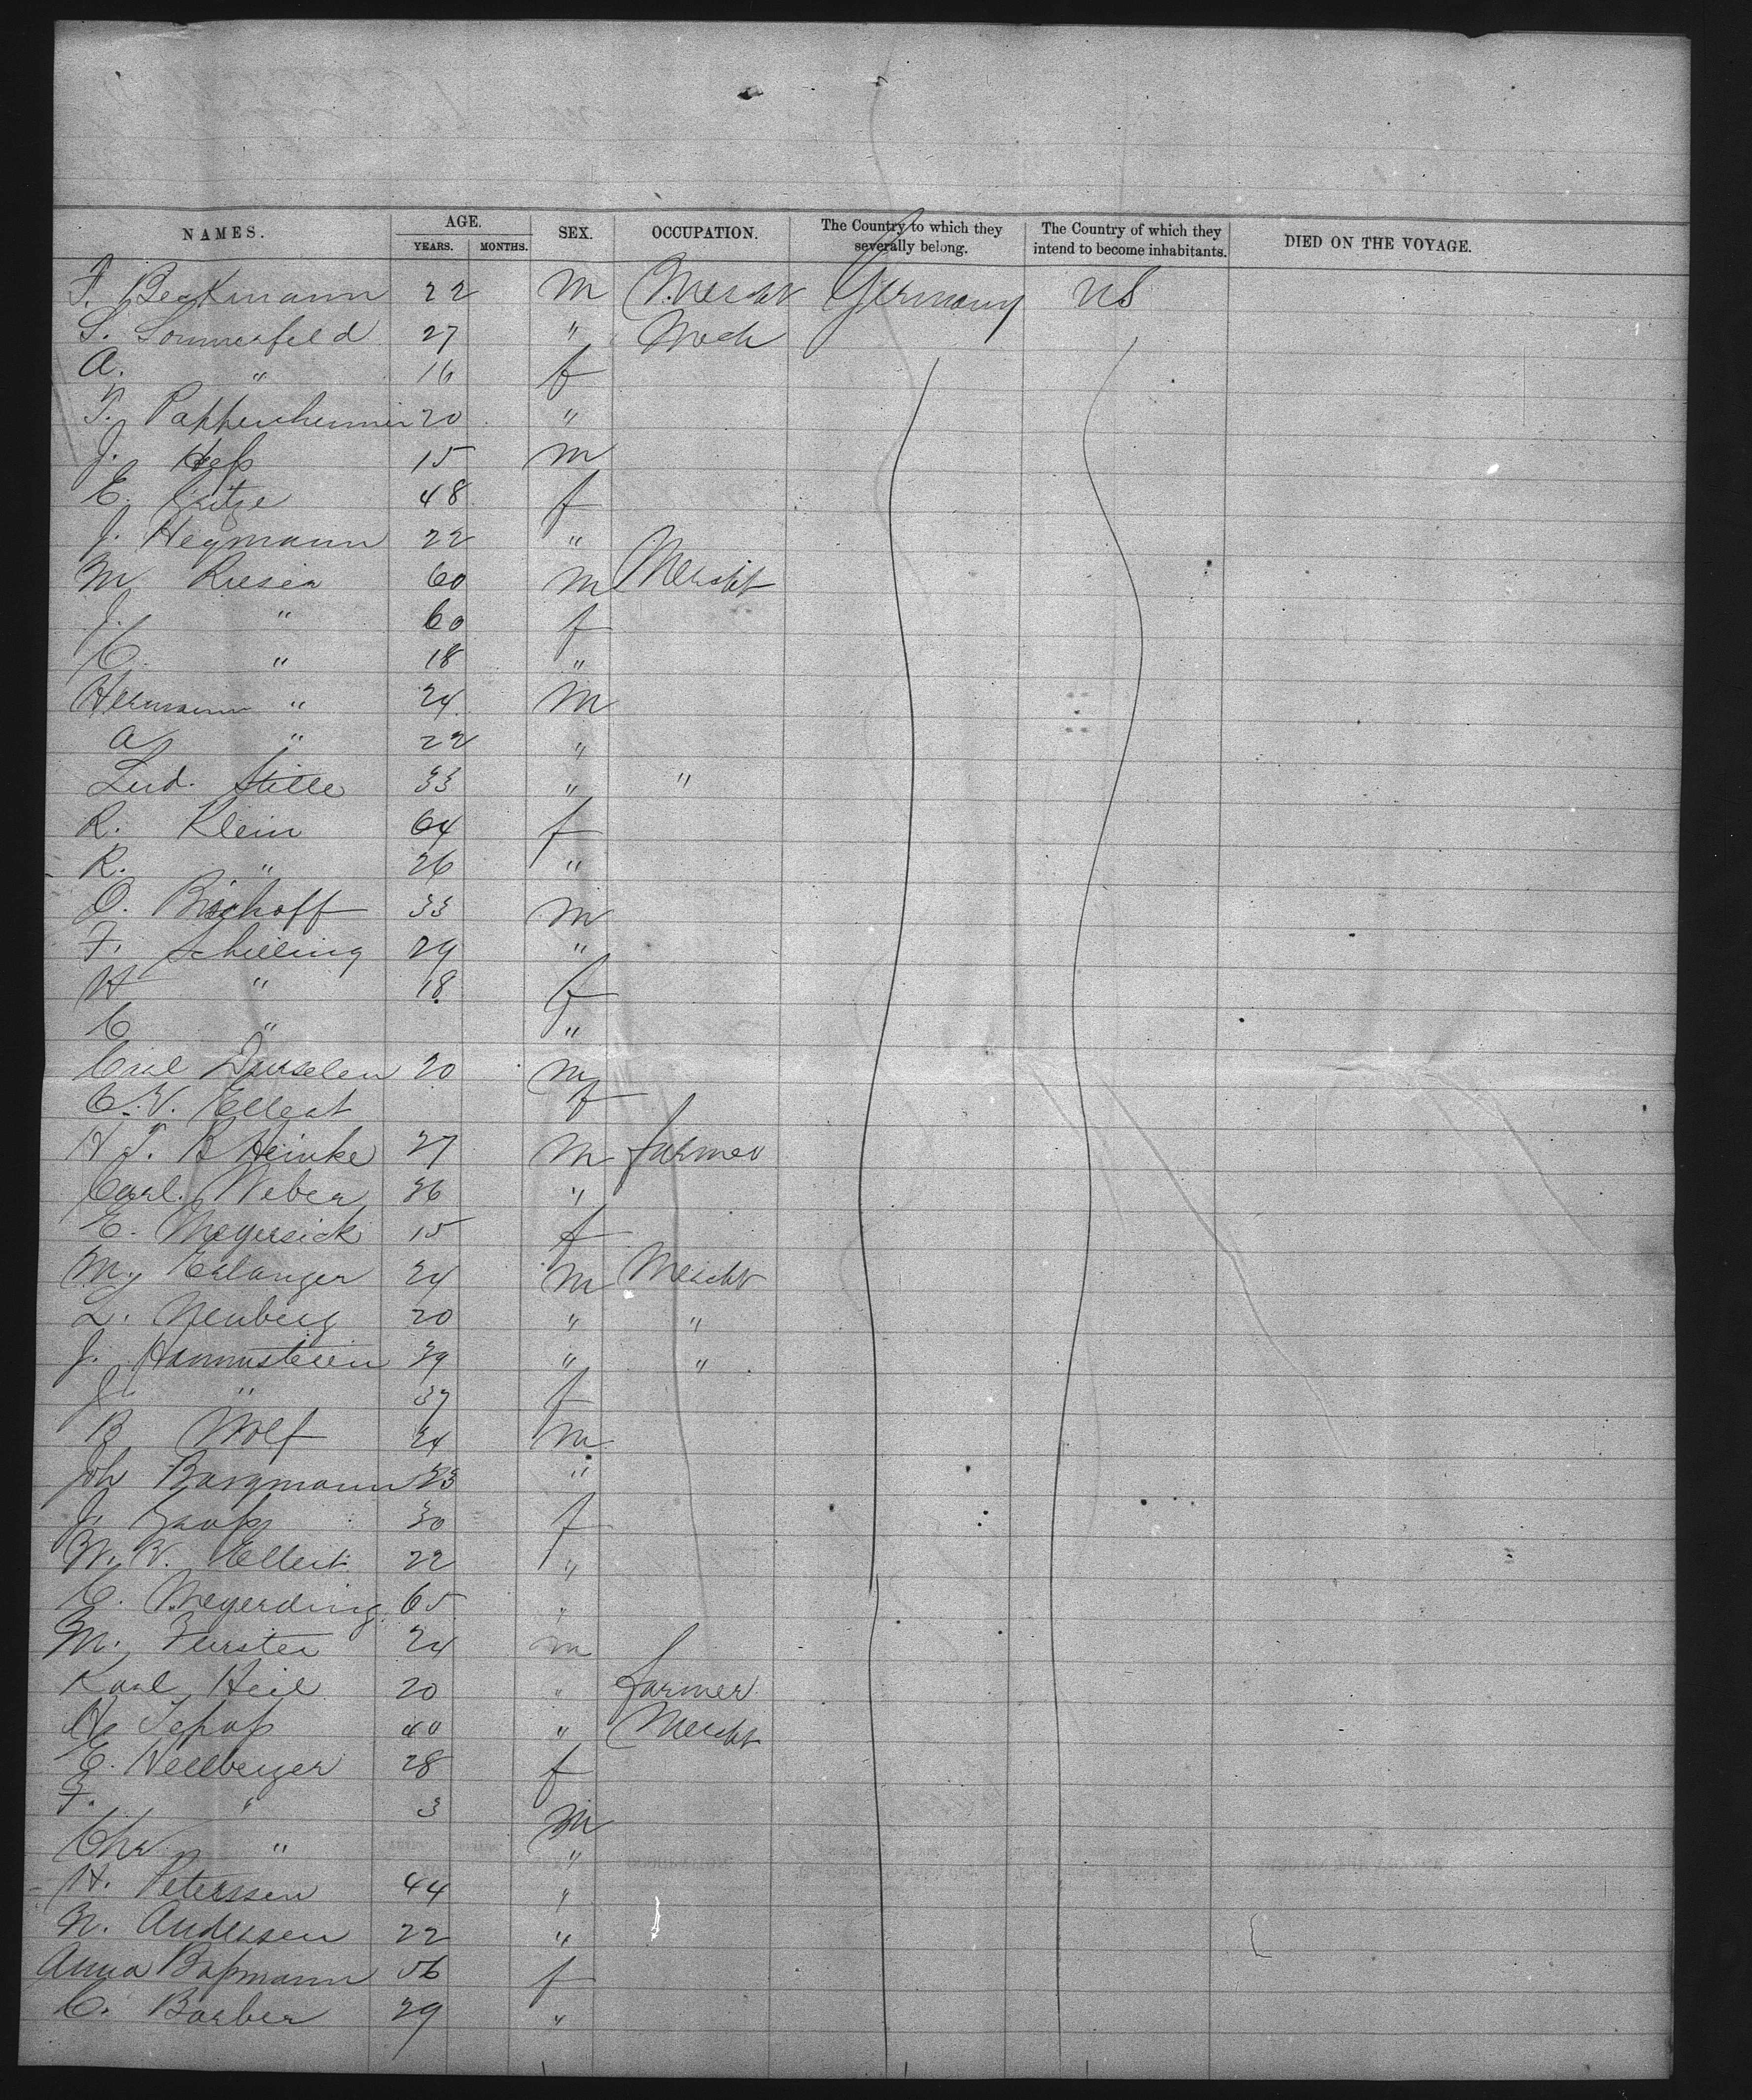 NAMES. AGE. YEARS. MONTHS. SEX. OCCUPATION. The Country to which they severally belong. The Country of which they intend to become inhabitants. DIED ON THE VOYAGE.
F. Beckmann 22 M Mercht Germany US
S. Sommerfeld 27 " Mech
A. " 16 f
T. Pappenheimer 20 "
J. Heß 15 M
E. Fritze 48 f
J. Hegmann 22 "
M Rieser 60 M Mercht
J. " 60 f
C. " 18 "
Hermann " 24 M
A " 22 "
Lud. Stille 33 " "
R. Klein 64 f
R. " 26 "
O. Bischoff 33 M
F. Schilling 29 "
H " 18 f
C " "
Carl 20 M
C. V. f
H F. B Heinke 27 M farmer
Carl. Weber 36 "
E. Meyersick 15 f
M. Erlanger 24 M Mercht
L. Neuberg 20 " "
J. Hammstein 39 " "
J. " 37 f
B Wolf 24 M
Joh Bargmann 23 "
J. 30 f
W. V. Ellert 22 "
C. Meyerding 65 "
M. Furster 24 M
Karl Heil 20 " farmer
H. 40 " Mercht
E. Hellberger 28 f
F. " 3 M
Chr " "
H. Peterssen 44 "
N. Andersen 22 "
Anna Baßmann 56 f
C. Barber 29 "